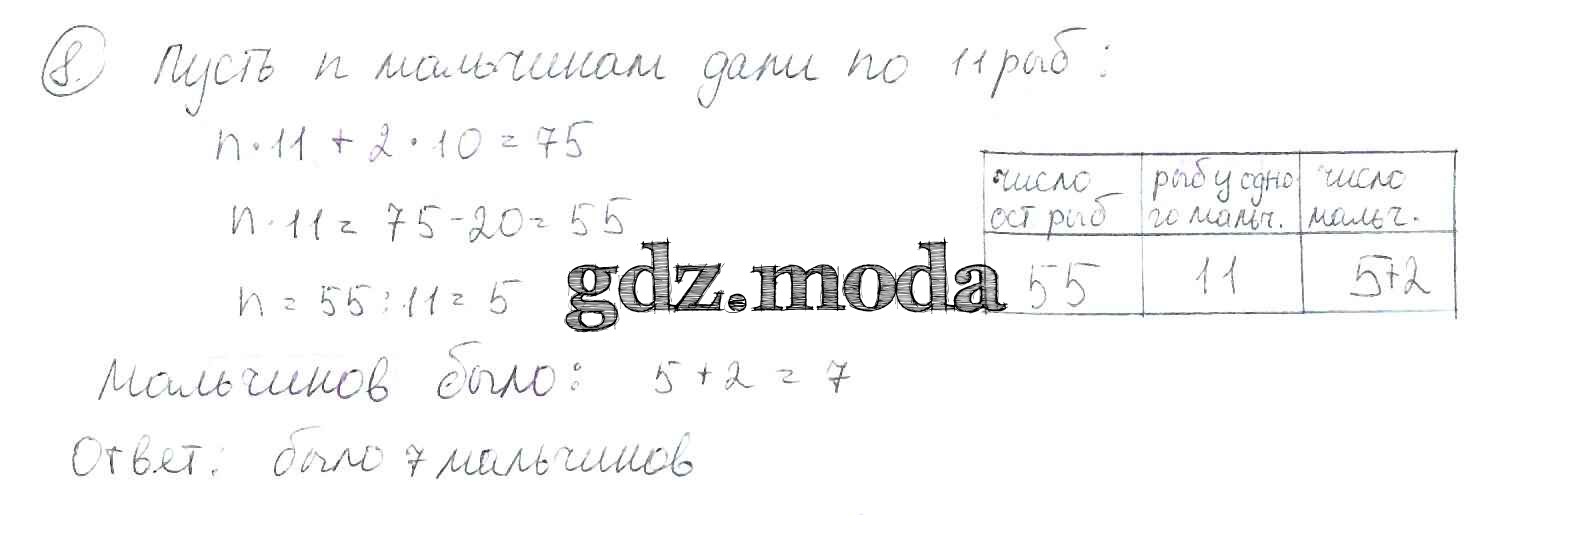 8. Пусть n мальчикам дали по 11 рыб:
n·11 + 2·10 = 75
n·11 = 75-20 = 55
n = 55:11 = 5
число ост рыб
рыб у одно го мальч.
число мальч.
55
11
5+2
gdz.moda
Мальчиков было: 5+2 = 7
Ответ: было 7 мальчиков